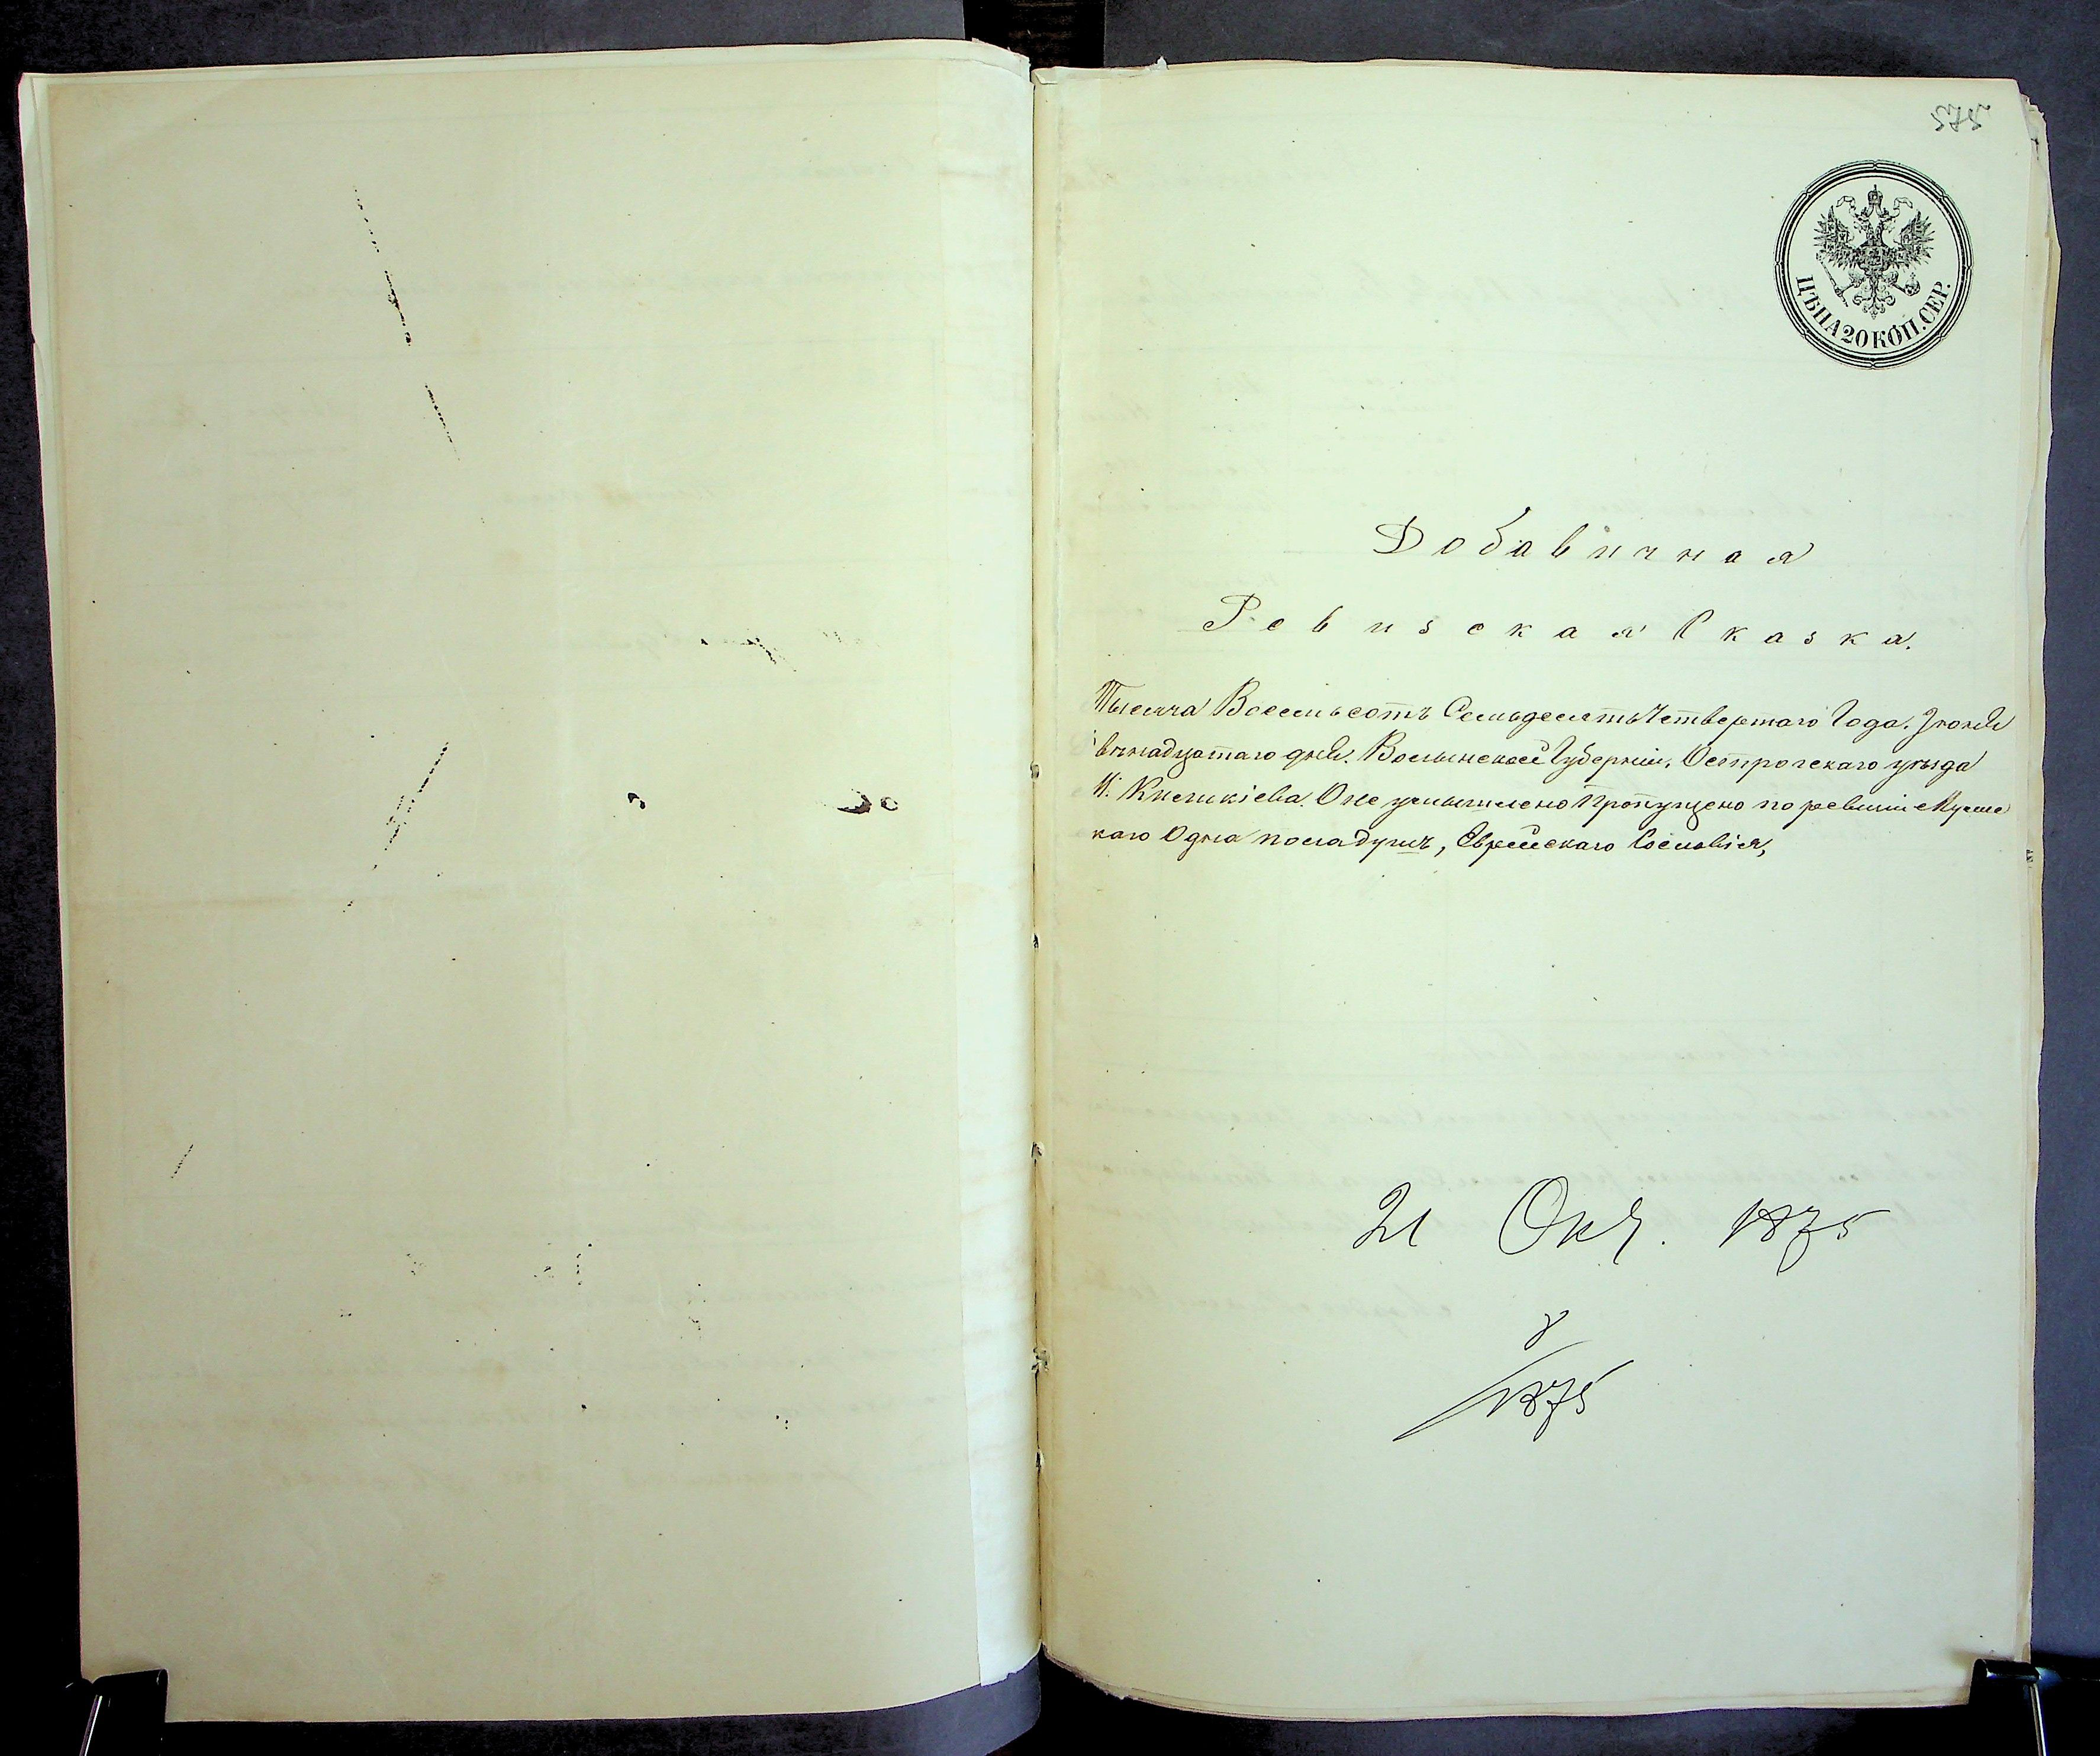 575
ЦѢНА 20 КОП. СЕР.
Добавичная
Ревизская Сказка.
Тысяча Восемьсотъ Семьдесятъ Четвертаго Года. Іюня
дня. Волынской Губерніи, Острогскаго уѣзда
М. Киликіева. О не умышлено пропущено по ревизіи Мужес
каго Одна пола душъ, Еврейскаго Сословія,
21 Окт. 1875
8
1875